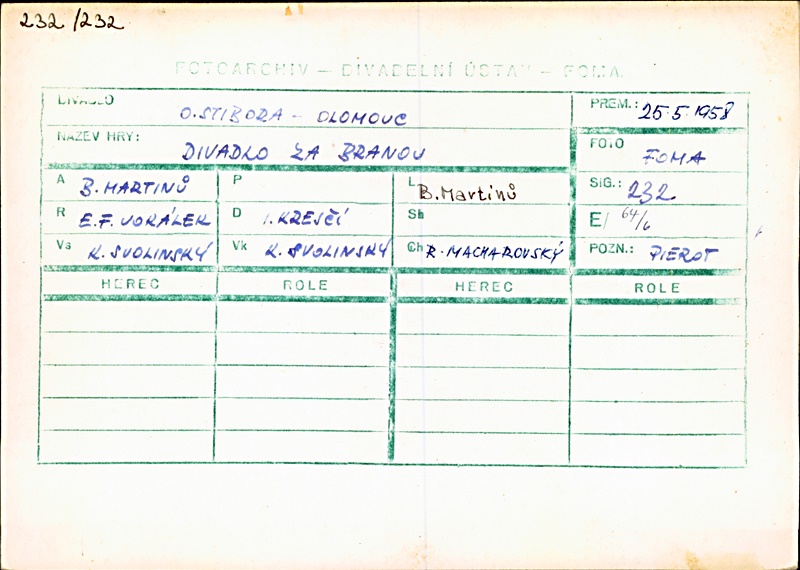 232/232
FOTOARCHIV – DIVADELNÍ ÚSTAV – FOMA
DIVADLO O. STIBORA – OLOMOUC PREM.: 25.5.1958
NÁZEV HRY: DIVADLO ZA BRANOU FOTO FOMA
A B. MARTINŮ P L B. Martinů SIG.: 232
R E.F. VOKÁLEK D I. KREJČÍ Sb E/ 64/6
Vs K. SVOLINSKÝ Vk K. SVOLINSKÝ Ch R. MACHAROVSKÝ POZN.: PIEROT
HEREC ROLE HEREC ROLE